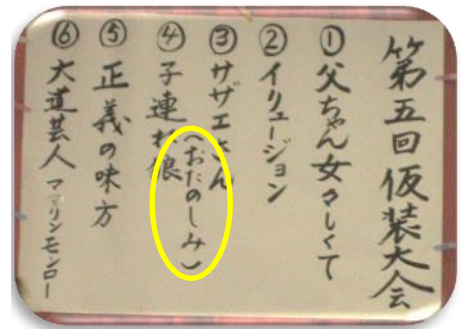 第五回仮装大会
① 父ちゃん女々しくて
② イリュージョン
③ サザエさん
(おたのしみ)
④ 子連れ狼
⑤ 正義の味方
⑥ 大道芸人 マリリンモンロー